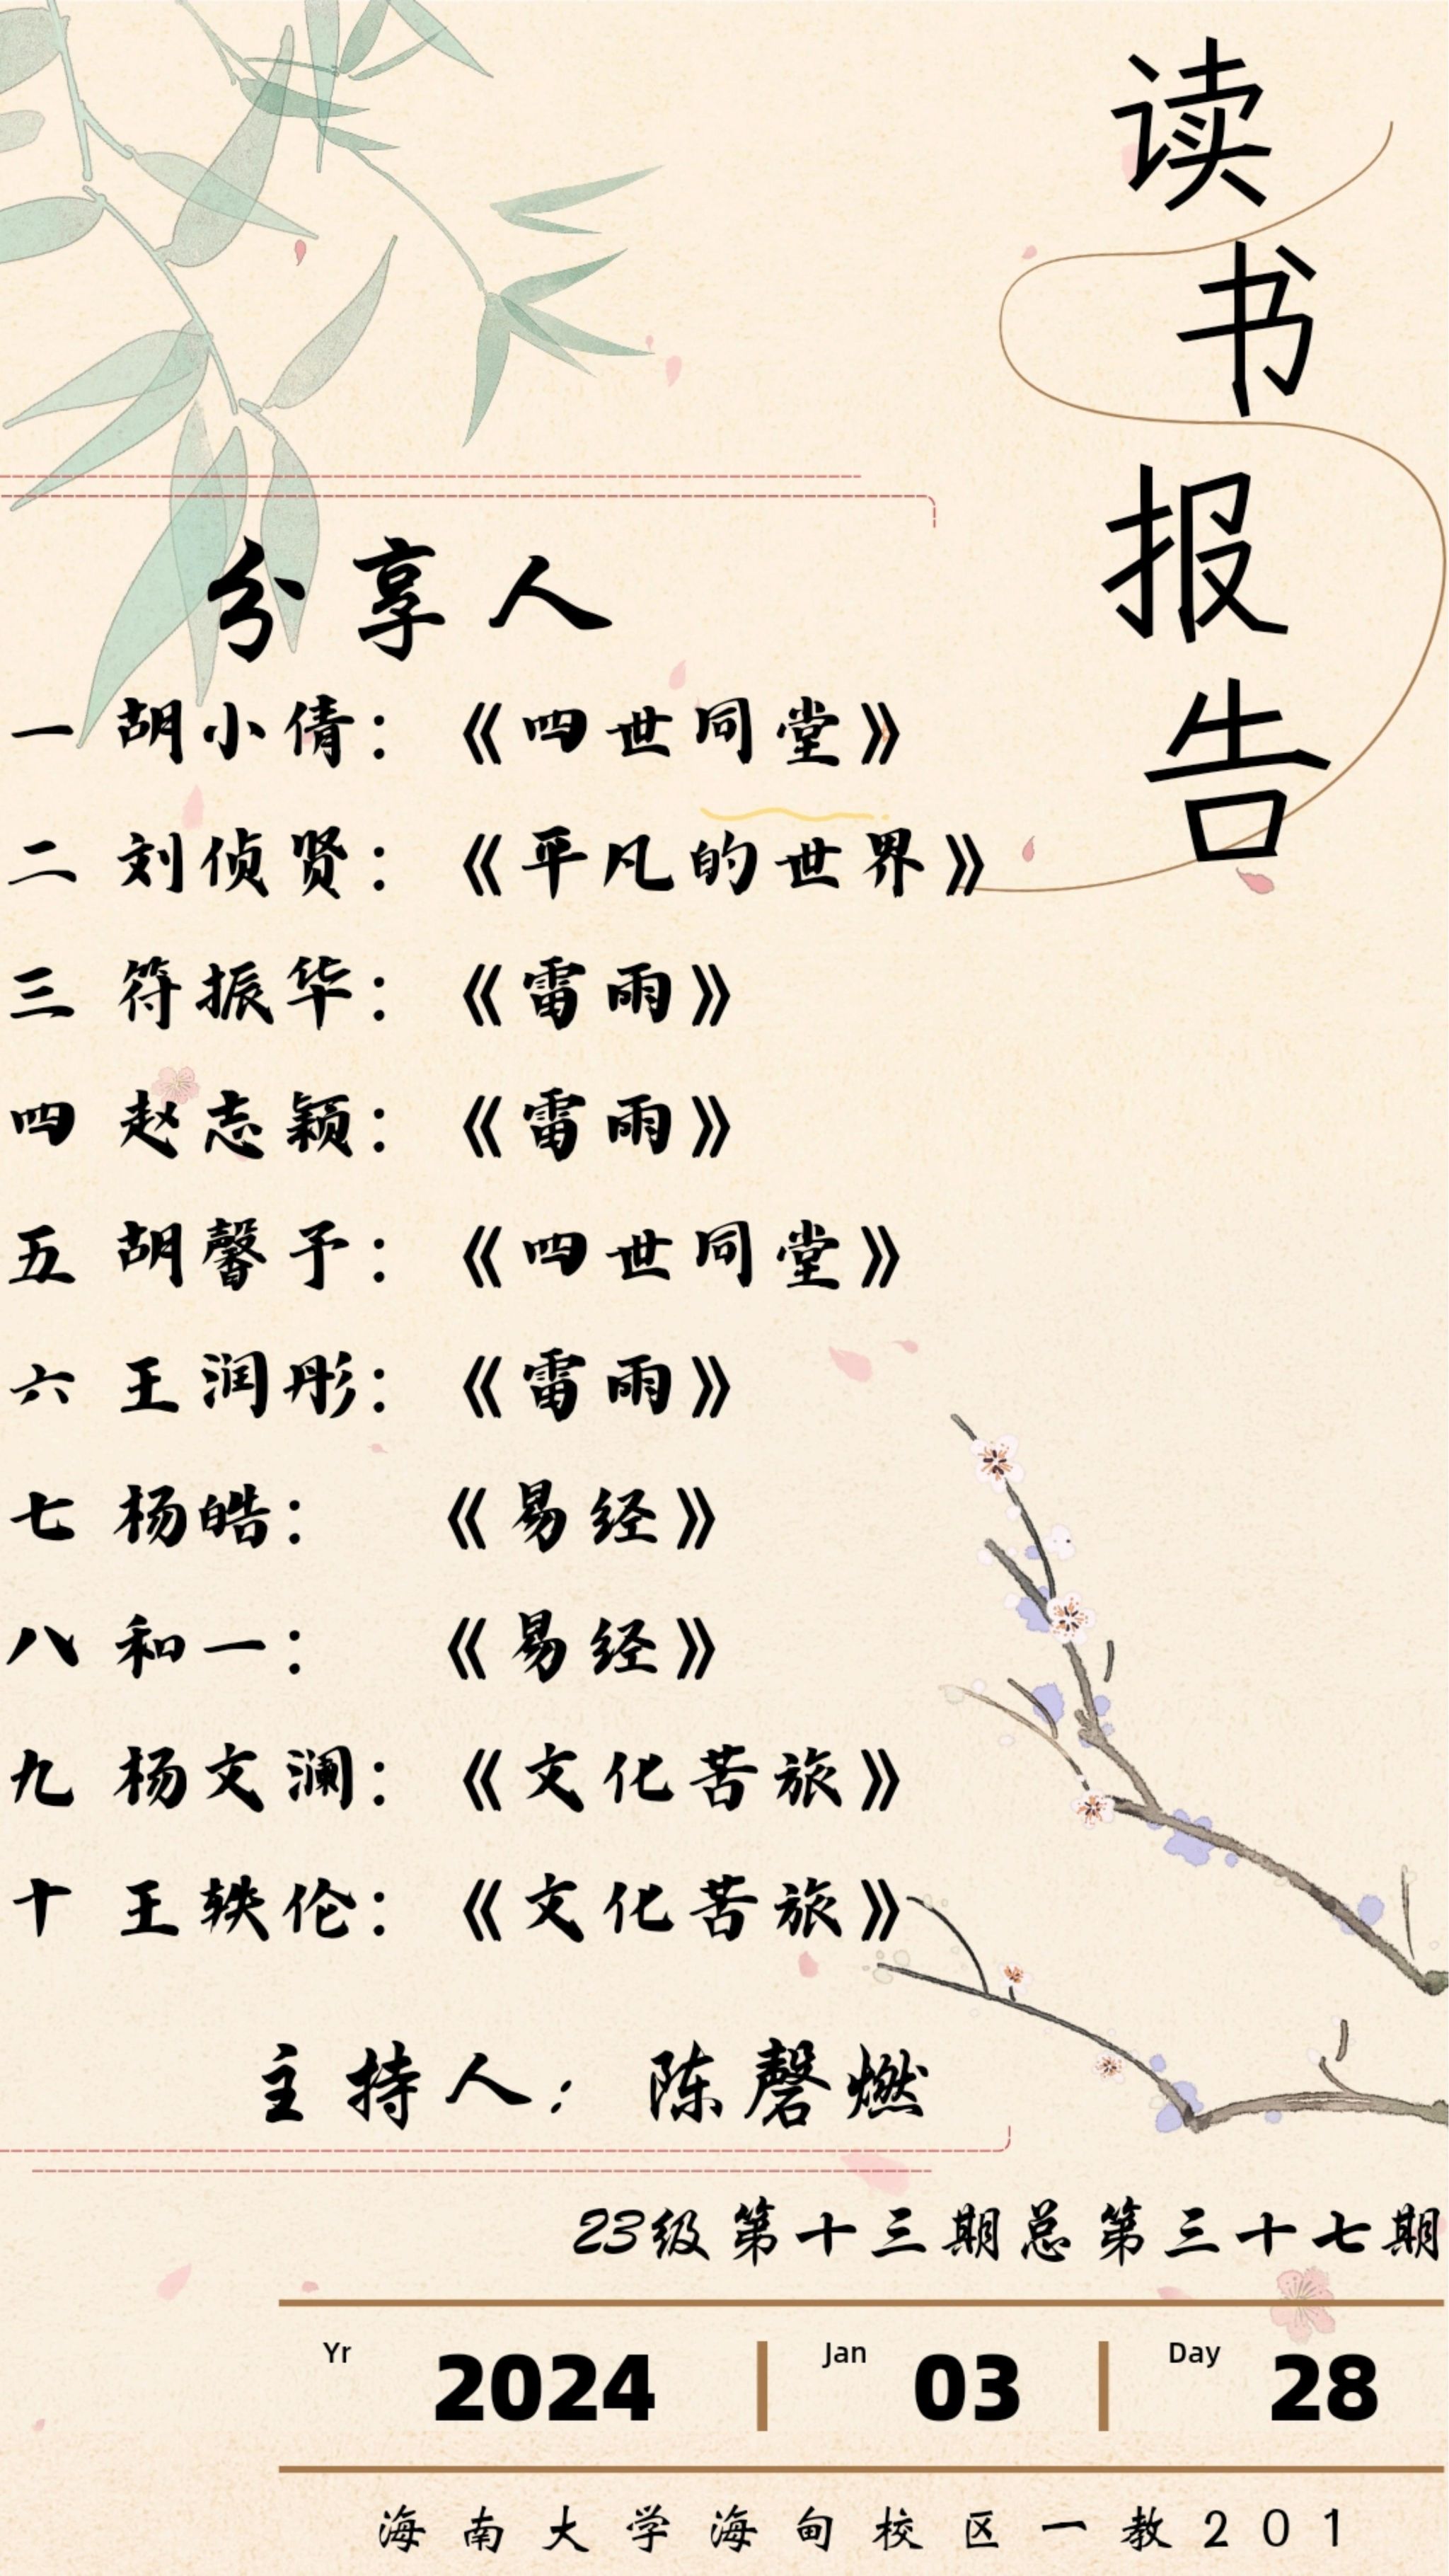 读书报告
分享人
一 胡小倩：《四世同堂》
二 刘侦贤：《平凡的世界》
三 符振华：《雷雨》
四 赵志颖：《雷雨》
五 胡馨予：《四世同堂》
六 王润彤：《雷雨》
七 杨皓：《易经》
八 和一：《易经》
九 杨文澜：《文化苦旅》
十 王轶伦：《文化苦旅》
主持人：陈磬燃
23级第十三期总第三十七期
Yr 2024 Jan 03 Day 28
海南大学海甸校区一教201